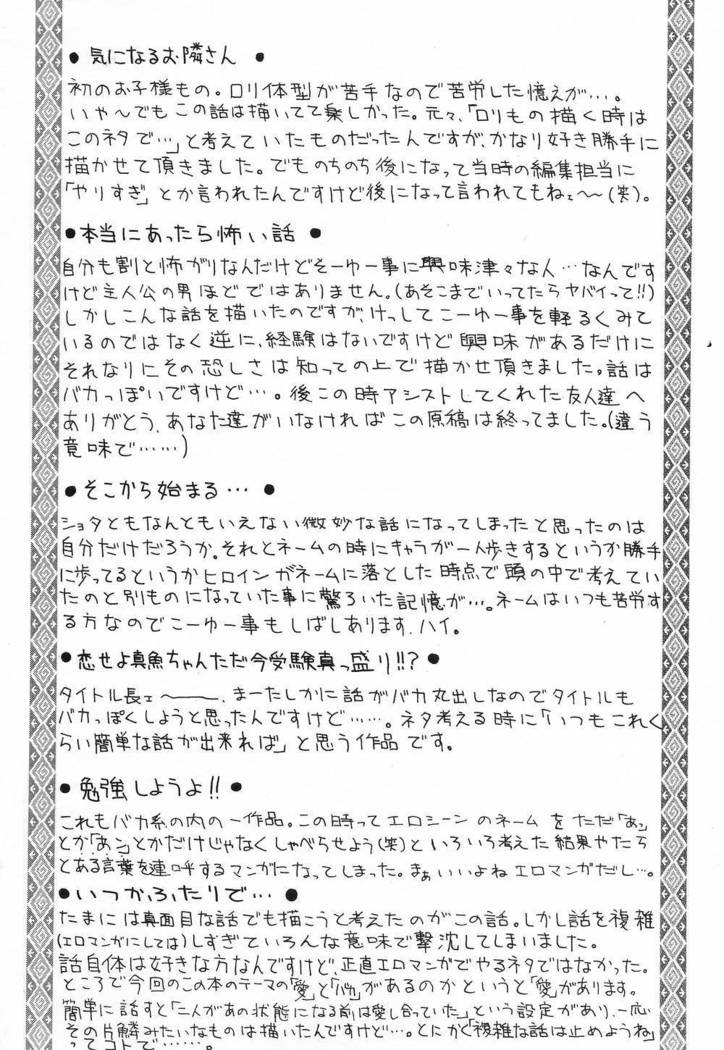 ●気になるお隣さん●
初のお子様もの。ロリ体型が苦手なので苦労した憶えが…。
いや〜でもこの話は描いてて楽しかった。元々、「ロリもの描く時は
このネタで…」と考えていたものだったんですが、かなり好き勝手に
描かせて頂きました。でものちのち後になって当時の編集担当に
「やりすぎ」とか言われたんですけど後になって言われてもねェ〜〜(笑)。
●本当にあったら怖い話●
自分も割と怖がりなんだけどそーゆー事に興味津々な人…なんです
けど主人公の男ほどではありません。(あそこまでいってたらヤバイって!!)
しかしこんな話を描いたのですが、けっしてこーゆー事を軽るくみて
いるのではなく逆に、経験はないですけど興味があるだけに
それなりにその恐しさは知っての上で描かせて頂きました。話は
バカっぽいですけど…。後この時アシストしてくれた友人達へ
ありがとう、あなた達がいなければこの原稿は終ってました。(違う
意味で……)
●そこから始まる…●
ショタともなんともいえない微妙な話になってしまったと思ったのは
自分だけだろうか。それとネームの時にキャラが一人歩きするというか勝手
に歩ってるというかヒロインがネームに落とした時点で頭の中で考えてい
たのと別ものになっていた事に驚ろいた記憶が…。ネームはいつも苦労す
る方なのでこーゆー事もしばしあります、ハイ。
●恋せよ真魚ちゃんただ今受験真っ盛り!!?●
タイトル長ェ〜――、まーたしかに話がバカ丸出しなのでタイトルも
バカっぽくしようと思ったんですけど……。ネタ考える時に「いつもこれく
らい簡単な話が出来れば」と思う作品です。
●勉強しようよ!!●
これもバカ系の内の一作品。この時ってエロシーンのネームをただ「あッ」
とか「あン」とかだけじゃなくしゃべらせよう(笑)といろいろ考えた結果やたら
とある言葉を連呼するマンガになってしまった。まぁいいよねエロマンガだし…。
●いつかふたりで…●
たまには真面目な話でも描こうと考えたのがこの話。しかし話を複雑
(エロマンガにしては)しすぎていろんな意味で撃沈してしまいました。
話自体は好きな方なんですけど、正直エロマンガでやるネタではなかった。
ところで今回のこの本のテーマの「愛」と「」があるのかというと「愛」があります。
簡単に話すと「二人があの状態になる前は愛し合っていた」という設定があり、一応
その片鱗みたいなものは描いたんですけど…。とにかく「複雑な話は止めようね」
ってコトで……。